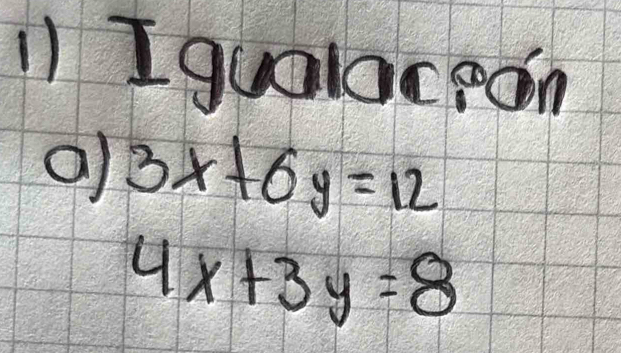 1) Igualación
a) 3x+6y=12
4x+3y=8